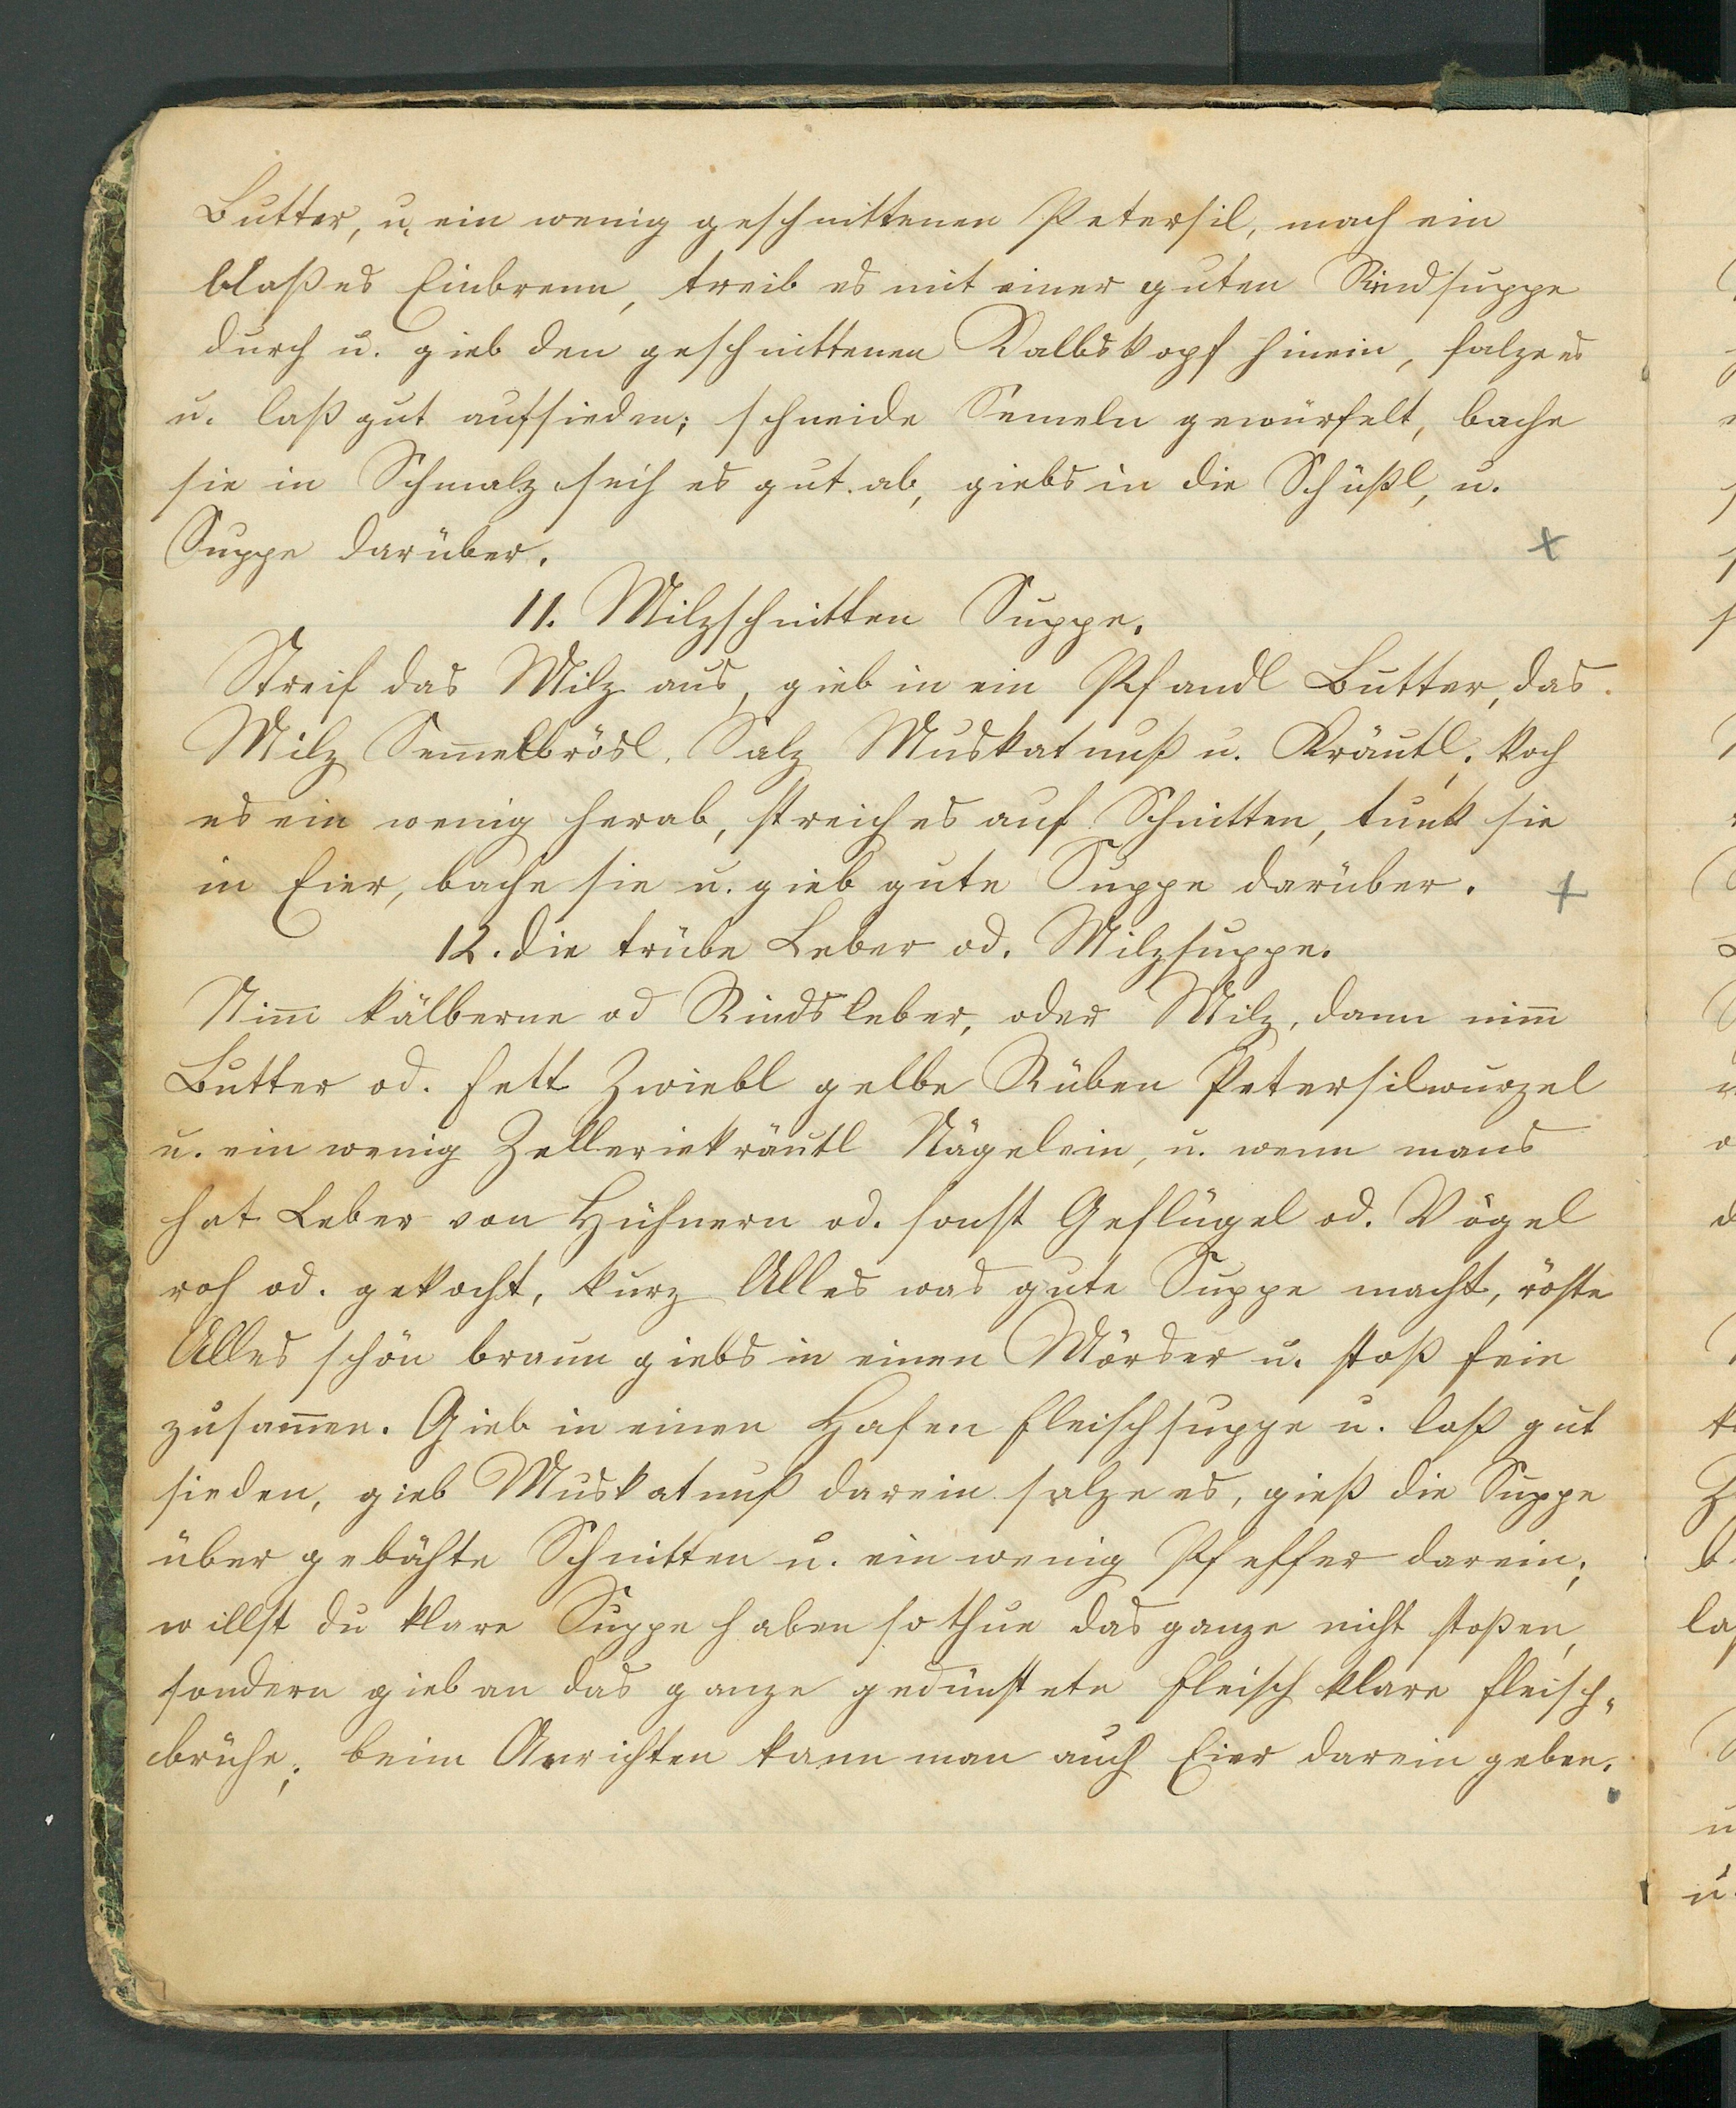 Butter, u. ein wenig geschnittenen Petersil, mach ein
blaßes Einbrenn, treib es mit einer guten Rindsuppe
durch u. gieb den geschnittenen Kalbskopf hinein, salze es
u. laß gut aufsieden; schneide Semeln gewürfelt, bache
sie in Schmalz seih es gut ab, giebs in die Schüßl, u.
Suppe darüber.
11. Milzschnitten Suppe.
Streif das Milz aus, gieb in ein Pfandl Butter, das
Milz Sem̅elbrösl, Salz Muskatnuß u. Kräutl; koch
es ein wenig herab, streich es auf Schnitten, tunk sie
in Eier, bache sie u. gieb gute Suppe darüber.
12. die trübe Leber od. Milzsuppe.
Nim̅ kälberne od Rindsleber, oder Milz, dann nim̅
Butter od. Fett Zwiebl gelbe Rüben Petersilwurzel
u. ein wenig Zelleriekräutl Nägelein, u. wenn mans
hat Leber von Hühnern od. sonst Geflügel od. Vögel
roh od. gekocht, kurz Alles was gute Suppe macht, röste
Alles schön braun giebs in einen Mörder u. stoß fein
zusam̅en. Gieb in einen Hafen Fleischsuppe u. laß gut
sieden, gieb Muskatnuß darein salze es, gieß die Suppe
über gebähte Schnitten u. ein wenig Pfeffer darein;
willst du klare Suppe haben so thue das ganze nicht stoßen,
sondern gieb an das ganze gedünstete Fleisch klare Fleisch-
brühe; beim Anrichten kann man auch Eier darein geben.